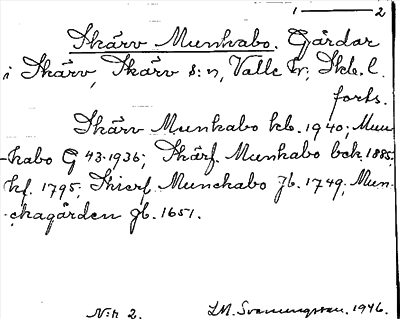 1 ——— 2
Skärv Munkabo. Gårdar
i Skärv, Skärv s:n, Valle hr, Skb. l.
forts.
Skärv Munkabo kb. 1940; Mun-
-kabo G 43.1936; Skärf. Munkabo bek. 1885;
kf. 1795; Skierf. Munckabo Jb. 1749; Mun-
ckagården Jb. 1651.
N:r 2. I.M. Svanungsson. 1946.